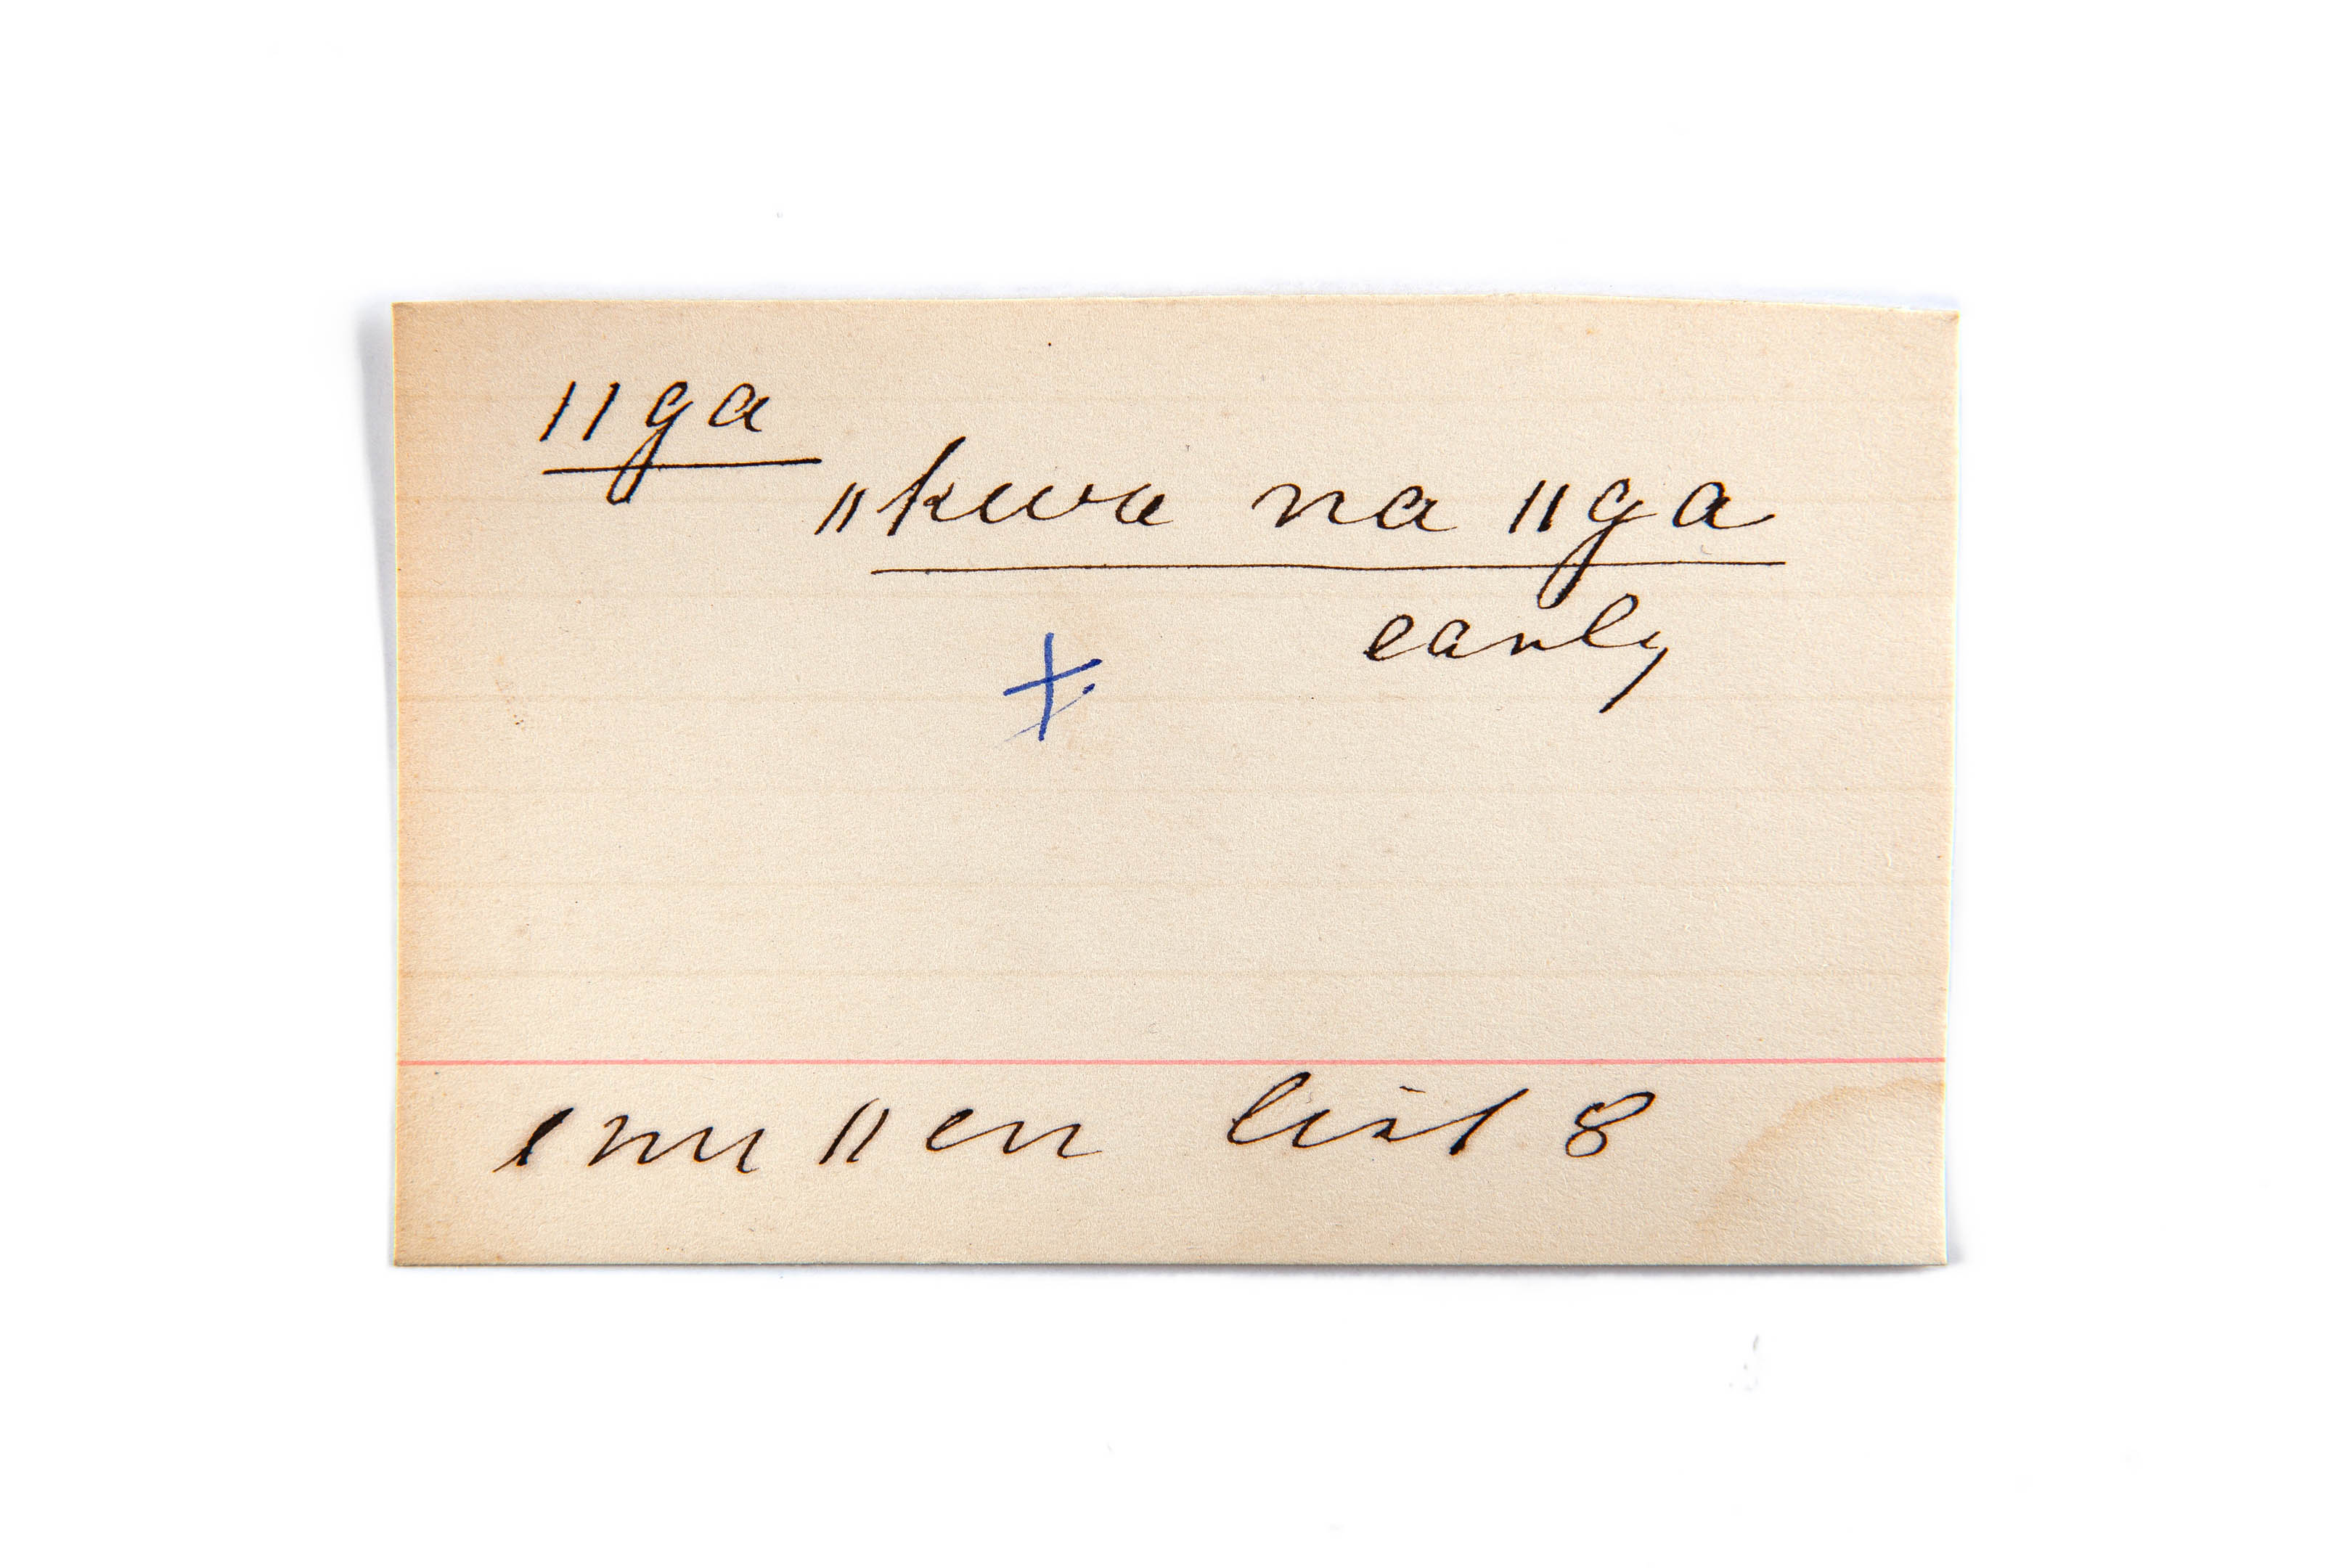 ǁga
ǁkwa na ǁga
early
ǀnu ǁen list 8